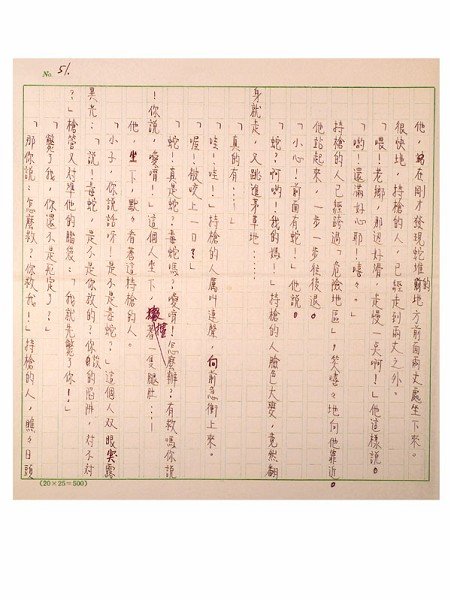 No. 51.
他，就在剛才發現蛇堆的地方前面兩丈處坐下來。
很快地，持槍的人，已經走到兩丈之外。
「喂！老鄉，那邊好滑，走慢一點啊！」他這樣說。
「喲！還滿好心耶！嘻々。」
持槍的人已經跨過「危險地區」，笑嘻々地向他靠近。
他站起來，一步一步往後退。
「小心！前面有蛇！」他說。
「蛇？啊喲！我的媽！」持槍的人臉色大變，竟然翻
身就走，又跳進茅草地……
「真的有……」
「哇！哇！」持槍的人厲叫連聲，向前急衝上來。
「喔！被咬上一口？」
「蛇！真是蛇！毒蛇嗎？噯唷！怎麼辦？有救嗎你說
！你說，噯唷！」這個人坐下，摟著一隻腿肚……
他坐下，默々看著這持槍的人。
「小子，你說話呀！是不是毒蛇？」這個人双眼突露
異光：「說！毒蛇，是不是你放的？你設的陷阱，對不對
？」槍管又對準他的腦後：「我就先斃了你！」
「斃了我，你還不是死定了？」
「那你說：怎麼救？你救我！」持槍的人，瞧々日頭
(20×25＝500)